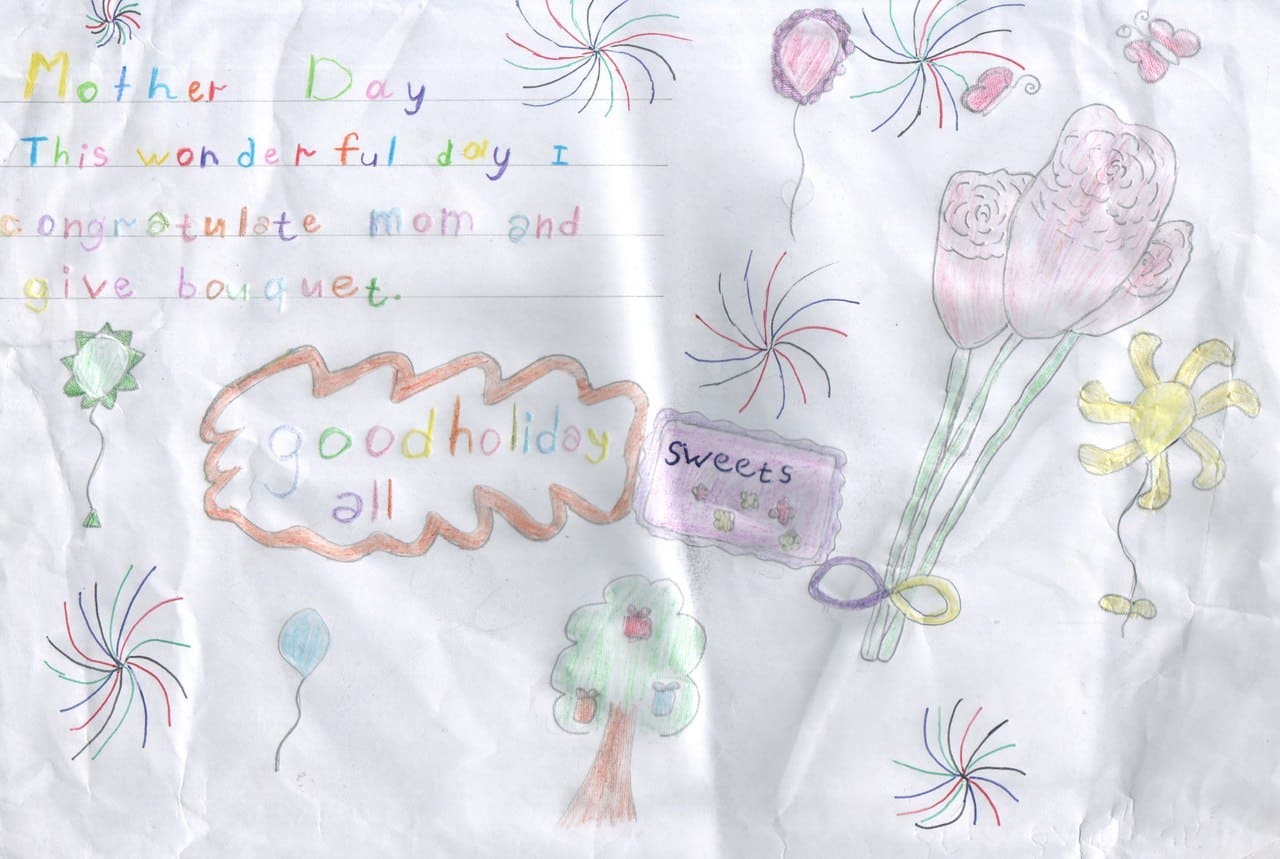 Mother Day
This wonderful day I
congratulate mom and
give bouquet.
good holiday
all
sweets